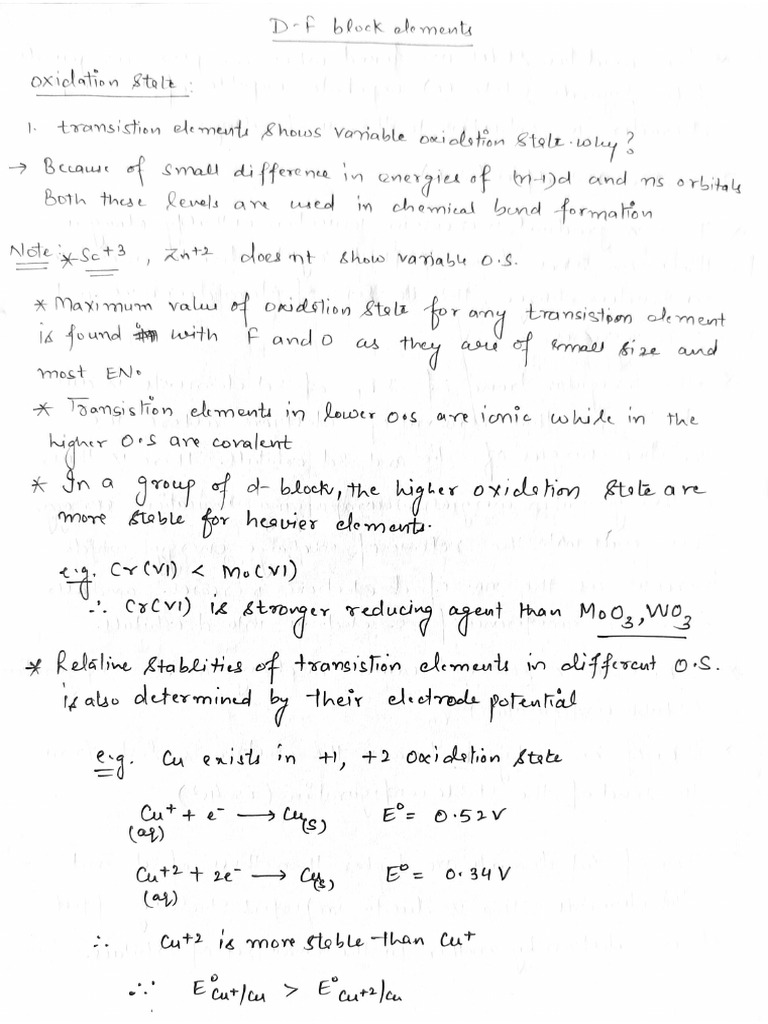 D-f block elements
oxidation state:
1. transistion elements shows variable oxidation state. why?
→ Because of small difference in energies of (n-1)d and ns orbitals
Both these levels are used in chemical bond formation
Note: * Sc+3 , Zn+2 does nt show variable O.S.
* Maximum value of oxidation state for any transistion element
is found with F and O as they are of small size and
most EN.
* Transistion elements in lower O.S are ionic while in the
higher O.S are covalent
* In a group of d-block, the higher oxidation state are
more stable for heavier elements.
e.g. Cr(VI) < Mo(VI)
∴ Cr(VI) is stronger reducing agent than MoO₃, WO₃
* Relative stablities of transistion elements in different O.S.
is also determined by their electrode potential
e.g. Cu exists in +1, +2 oxidation state
Cu⁺ + e⁻ ⟶ Cu(s) E° = 0.52V
(aq)
Cu+2 + 2e⁻ ⟶ Cu(s) E° = 0.34V
(aq)
∴ Cu+2 is more stable than Cu+
∵ E°Cu+/Cu > E°Cu+2/Cu